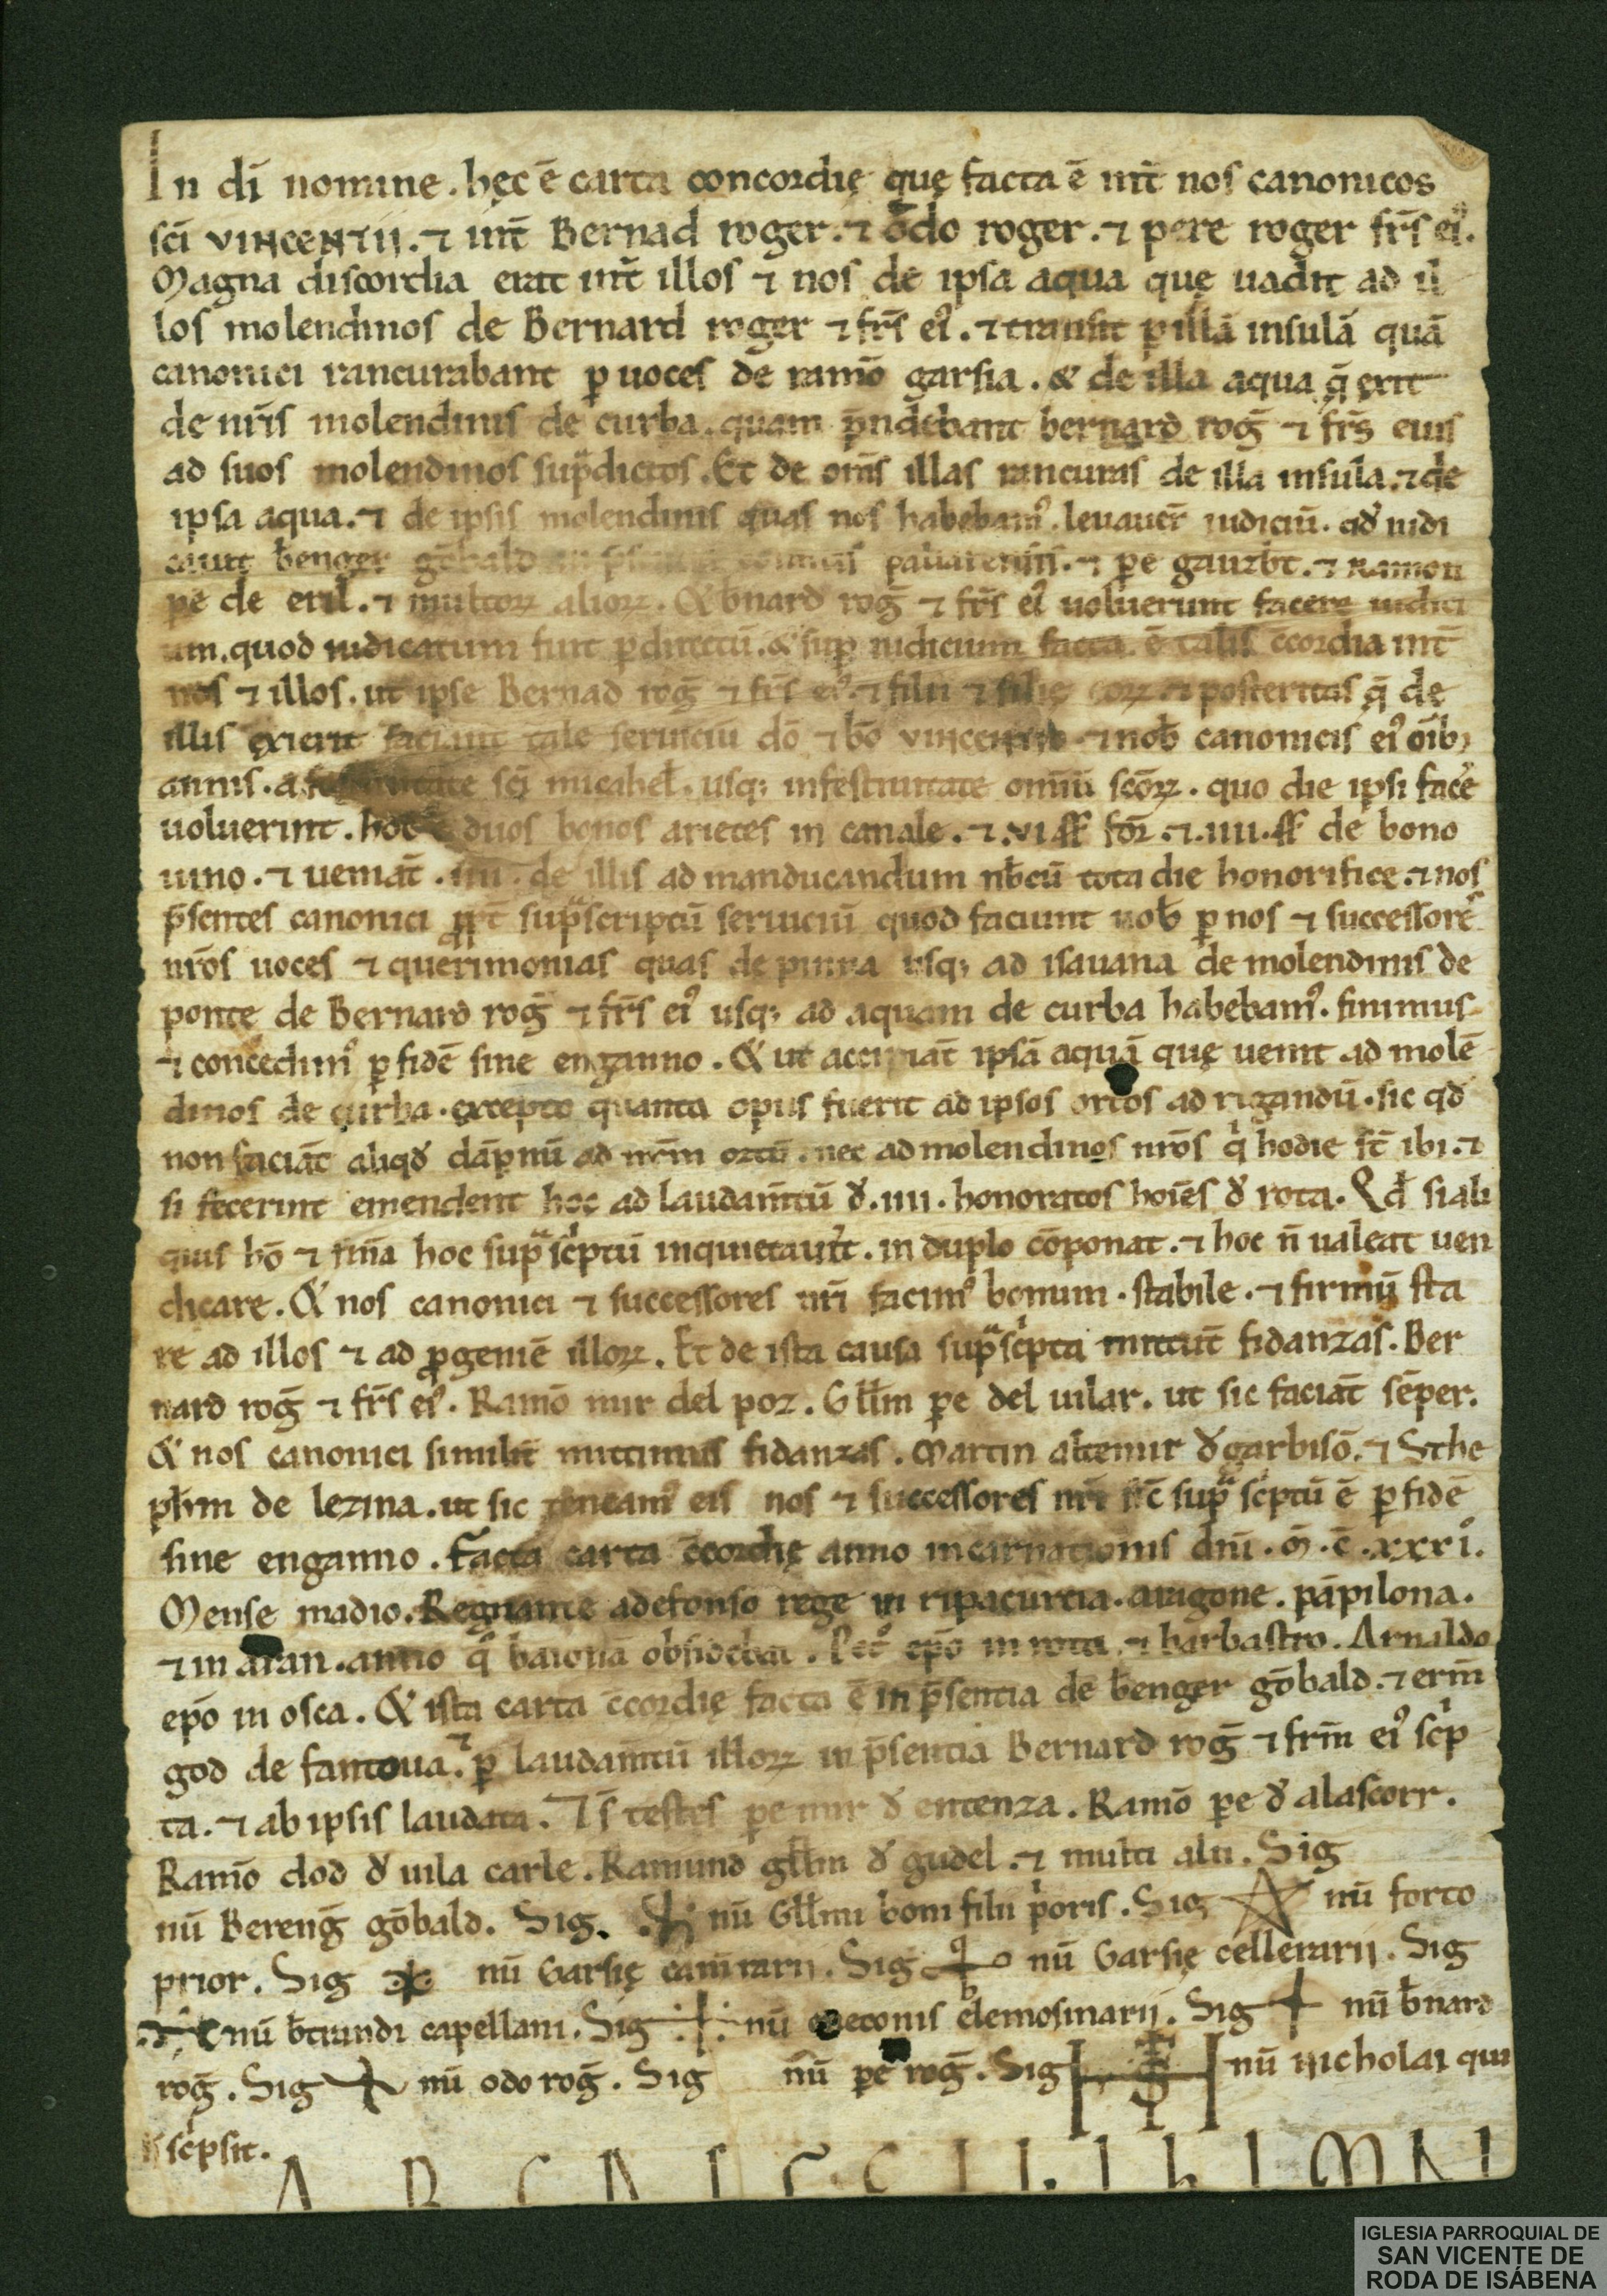 In dī nomine. hęc ē carta concordię quę facta ē int̄ nos canonicos
sc̄i VINCENTII. ⁊ int̄ Bernad roger. ⁊ ōdo roger. ⁊ pere roger fr̄s ei⁹.
Magna discordia erat int̄ illos ⁊ nos de ipsa aqua quę uadit ad il
los molendinos de Bernard roger ⁊ fr̄s ei⁹. ⁊ transit ꝑ illā insulā quā
canonici rancurabant ꝑ uoces de ramō garsia. & de illa aqua q̄ exit
de nr̄is molendinis de curba. quam p̄ndebant bernard roḡ ⁊ fr̄s eius
ad suos molendinos sup̄dictos. Et de om̄s illas rancuras de illa insula. ⁊ de
ipsa aqua. ⁊ de ipsis molendinis quas nos habebam⁹. leuauer̄ iudiciū. qđ iudi
cauit b̄enger gōbald ⁊ ꝑe gauzb̄t. ⁊ Ramon
ꝑe de eril. ⁊ multoꝝ alioꝝ. & b̄nard roḡ ⁊ fr̄s ei⁹ uoluerunt facere iudici
um. quod iudicatum fuit ꝑ directū. & sup iudicium facta ē talis c̄cordia int̄
nos ⁊ illos. ut ipse Bernad roḡ ⁊ fr̄s ei⁹ ⁊ filii ⁊ filię eoꝝ ⁊ posteritas q̄ de
illis exierit faciant tale seruiciū dō ⁊ bō vincentio ⁊ nob̄ canonicis ei⁹ oīb;
annis. a festiuitate sc̄i micahel. usq; in festiuitate omniū sc̄oꝝ. quo die ipsi fac̄e
uoluerint. hoc ē duos bonos arietes in canale. ⁊ .vi. ss̄ for̄. ⁊ .iiii. ss̄ de bono
uino. ⁊ ueniāt .iiii. de illis ad manducandum nb̄cū tota die honorifice. ⁊ nos
p̄sentes canonici ꝓpt̄ sup̄scriptū seruiciū quod faciunt nob̄ ꝑ nos ⁊ successore⁹
nr̄os uoces ⁊ querimonias quas de pinna usq; ad isauana de molendinis de
ponte de Bernard roḡ ⁊ fr̄s ei⁹ usq; ad aquam de curba habebam⁹. finimus
⁊ concedim⁹ ꝑ fidē sine enganno. & ut accipiāt ipsā aquā quę uenit ad molē
dinos de curba. excepto quanta opus fuerit ad ipsos ortos ad rigandū. sic qđ
non faciāt aliqđ dāpnū ad nr̄m ortū. nec ad molendinos nr̄os q̄ hodie st̄ ibi. ⁊
si fecerint emendent hoc ad laudam̄tū đ .iiii. honoratos hoīes đ rota. Qđ si ali
quis hō ⁊ fm̄a hoc supᵃsc̄ptū inquietauīt. in duplo cōponat. ⁊ hoc n̄ ualeat uen
dicare. & nos canonici ⁊ successores nr̄i facim⁹ bonum. stabile. ⁊ firmū sta
re ad illos ⁊ ad ꝓgeniē illoꝝ. Et de ista causa supᵃsc̄pta mittūt fidanzas. Ber
nard roḡ ⁊ fr̄s ei⁹. Ramō mir del poz. Gll̄m ꝑe del uilar. ut sic faciāt sēper.
& nos canonici similit̄ mittimus fidanzas. Martin altemir đ garbisō. ⁊ Sthe
ph̄m de lezina. ut sic teneam⁹ eis nos ⁊ successores nr̄i sic̄ supᵃ sc̄ptū ē ꝑ fidē
sine enganno. Facta carta c̄cordię anno incarnationis dn̄i. ō. c̄. xxxi⁰.
Mense madio. Regnante adefonso rege in ripacurcia. aragone. pāpilona.
⁊ in aran. anno q̊ baionā obsidebat. Pet⁹ ep̄o in rota. ⁊ barbastro. Arnaldo
ep̄o in osca. & ista carta c̄cordię facta ē in p̄sentia de b̄enger gōbald. ⁊ erm̄
god de fantoua. ⁊ ꝑ laudam̄tū illoꝝ in p̄sentia Bernard roḡ ⁊ fr̄m ei⁹ sc̄p
ta. ⁊ ab ipsis laudata. Is̄ testes ꝑe mir đ entenza. Ramō ꝑe đ alascorr.
Ramō dod đ uila carle. Ramund gll̄m đ gudel. ⁊ multi alii. Sig
nū Berenḡ gōbald. Sig nū Gll̄mi boni filii p̄oris. Sig nū forto
prior. Sig nū Garsię cam̄rarii. Sig nū Garsię cellerarii. Sig
nū b̄trandi capellani. Sig nū elemosinarii. Sig nū b̄nard
roḡ. Sig nū odo roḡ. Sig nū ꝑe roḡ. Sig nū nicholai qui
sc̄psit.
IGLESIA PARROQUIAL DE
SAN VICENTE DE
RODA DE ISÁBENA